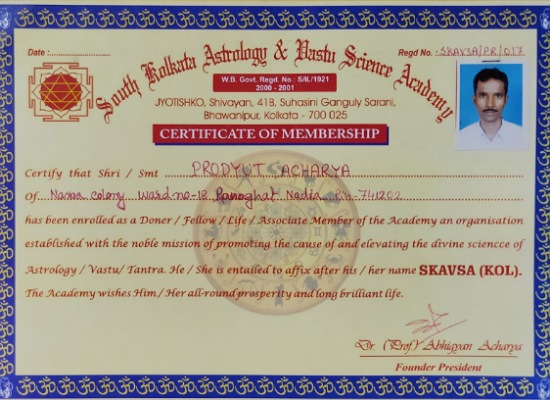 Date :
Regd No. - SKAVSA/PR/017
South Kolkata Astrology & Vastu Science Academy
W.B. Govt. Regd. No. : S/IL/1921
2000 - 2001
JYOTISHKO, Shivayan, 41B, Suhasini Ganguly Sarani,
Bhawanipur, Kolkata - 700 025
CERTIFICATE OF MEMBERSHIP
Certify that Shri / Smt PRODYUT ACHARYA
Of Nasra colony Ward no-12 Ranaghat Nadia 741202
has been enrolled as a Doner / Fellow / Life / Associate Member of the Academy an organisation
established with the noble mission of promoting the cause of and elevating the divine sciencce of
Astrology / Vastu / Tantra. He / She is entailed to affix after his / her name SKAVSA (KOL).
The Academy wishes Him / Her all-round prosperity and long brilliant life.
Dr. (Prof) Abhigyan Acharya
Founder President